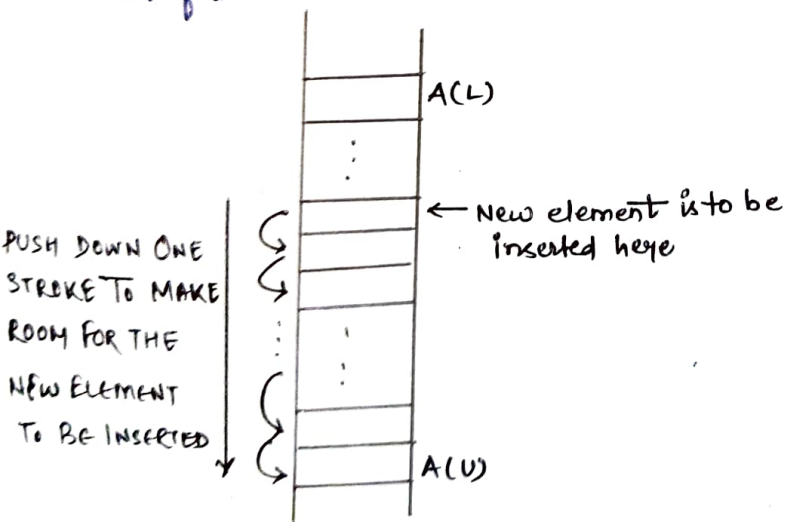 A(L)
← New element is to be
inserted here
PUSH DOWN ONE
STROKE TO MAKE
ROOM FOR THE
NEW ELEMENT
TO BE INSERTED
A(U)